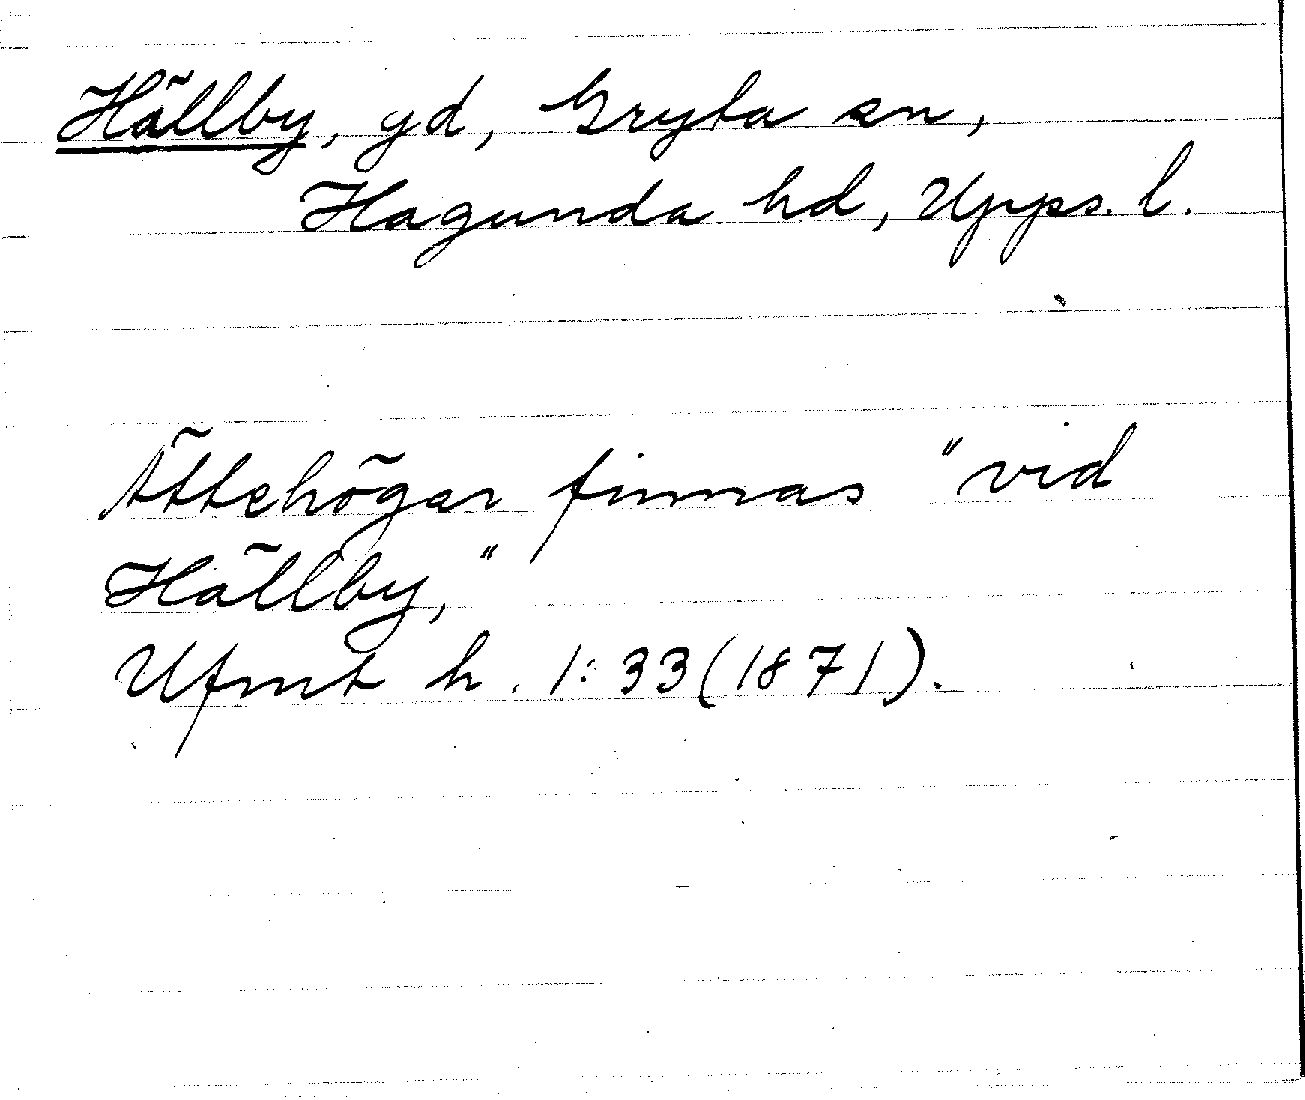 Hällby, gd, Gryta sn,
Hagunda hd, Upps. l.
Ättehögar finnas "vid
Hällby,"
Ufmt h. 1:33 (1871).